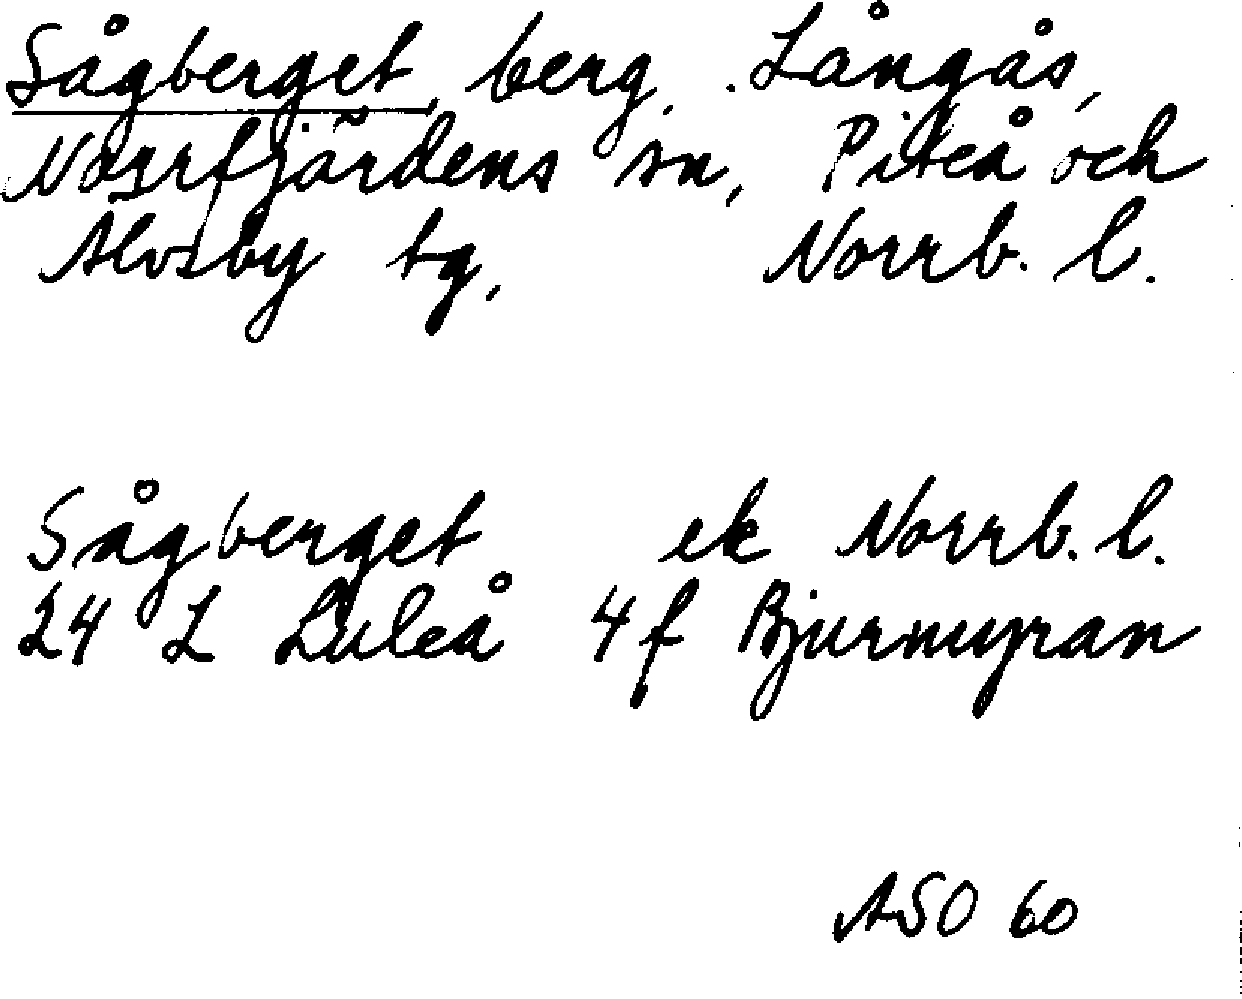 Sågberget, berg, Långås,
Norrfjärdens sn, Piteå och
Älvsby tg, Norrb. l.
Sågberget ek Norrb. l.
24 L Luleå 4f Bjurmyran
ASO 60